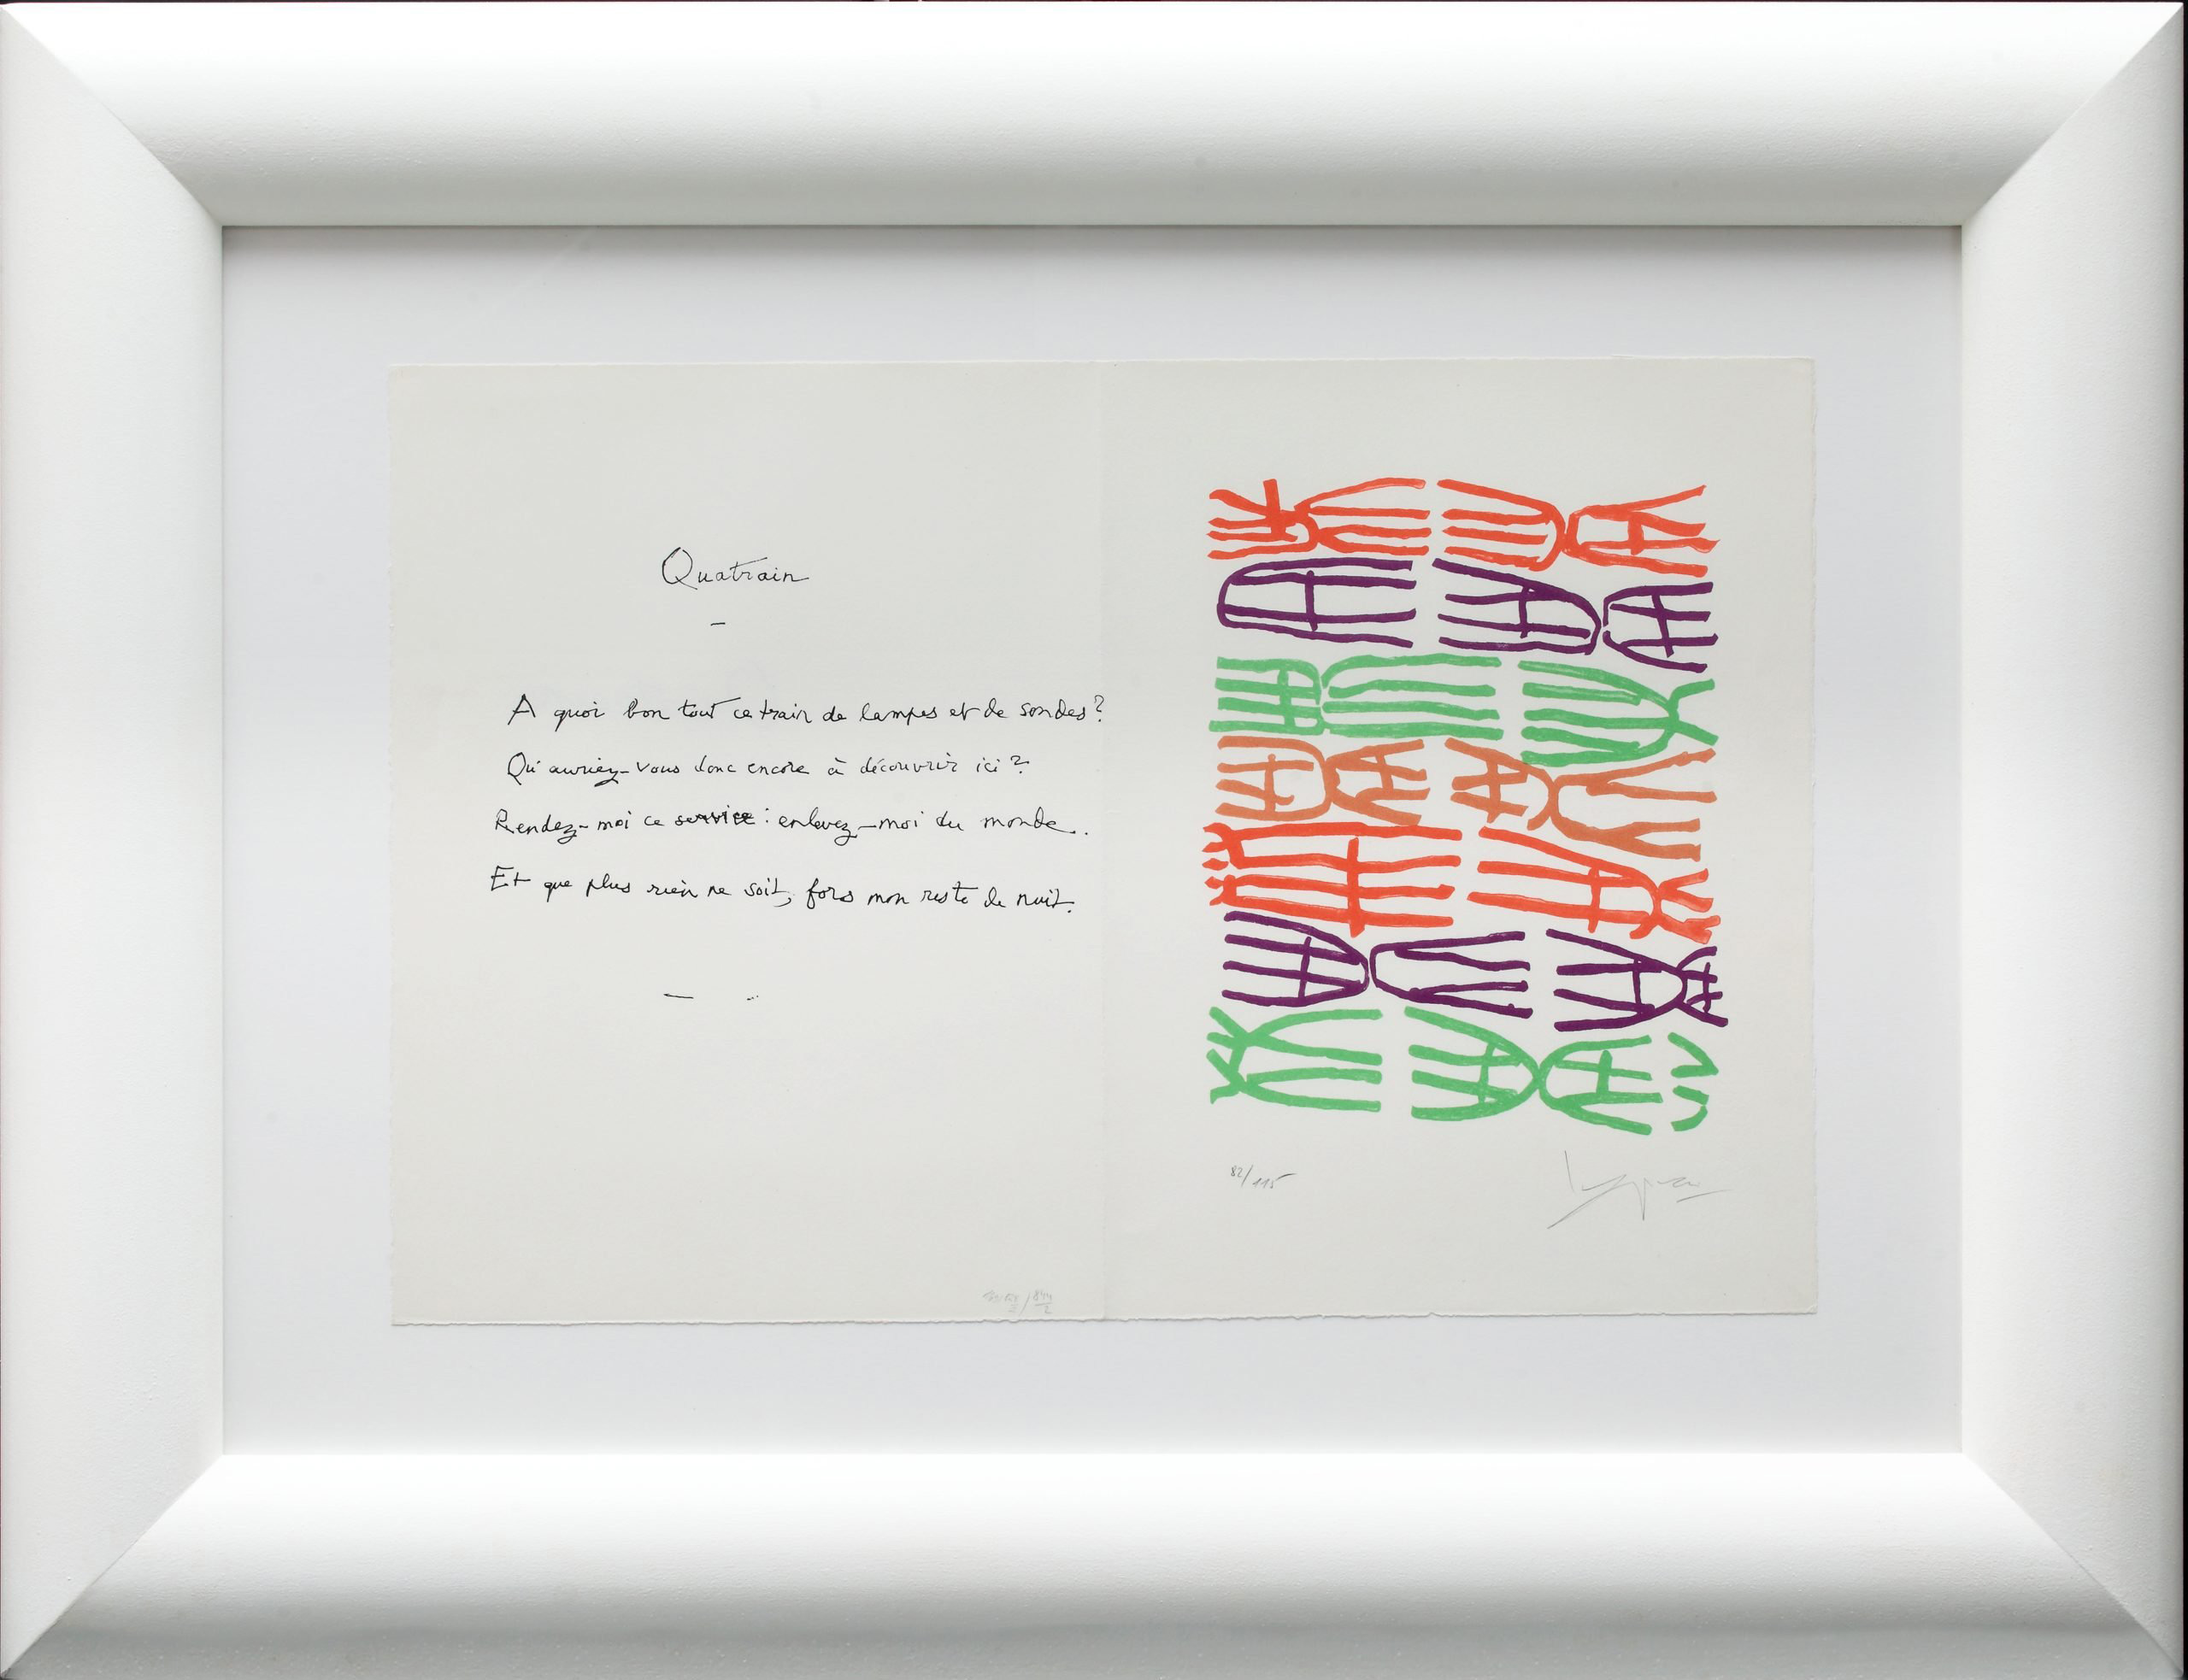 Quatrain
A quoi bon tout ce train de lampes et de sondes ?
Qu'auriez-vous donc encore à découvrir ici ?
Rendez-moi ce service : enlevez-moi du monde.
Et que plus rien ne soit, fors mon reste de nuit.
82/115